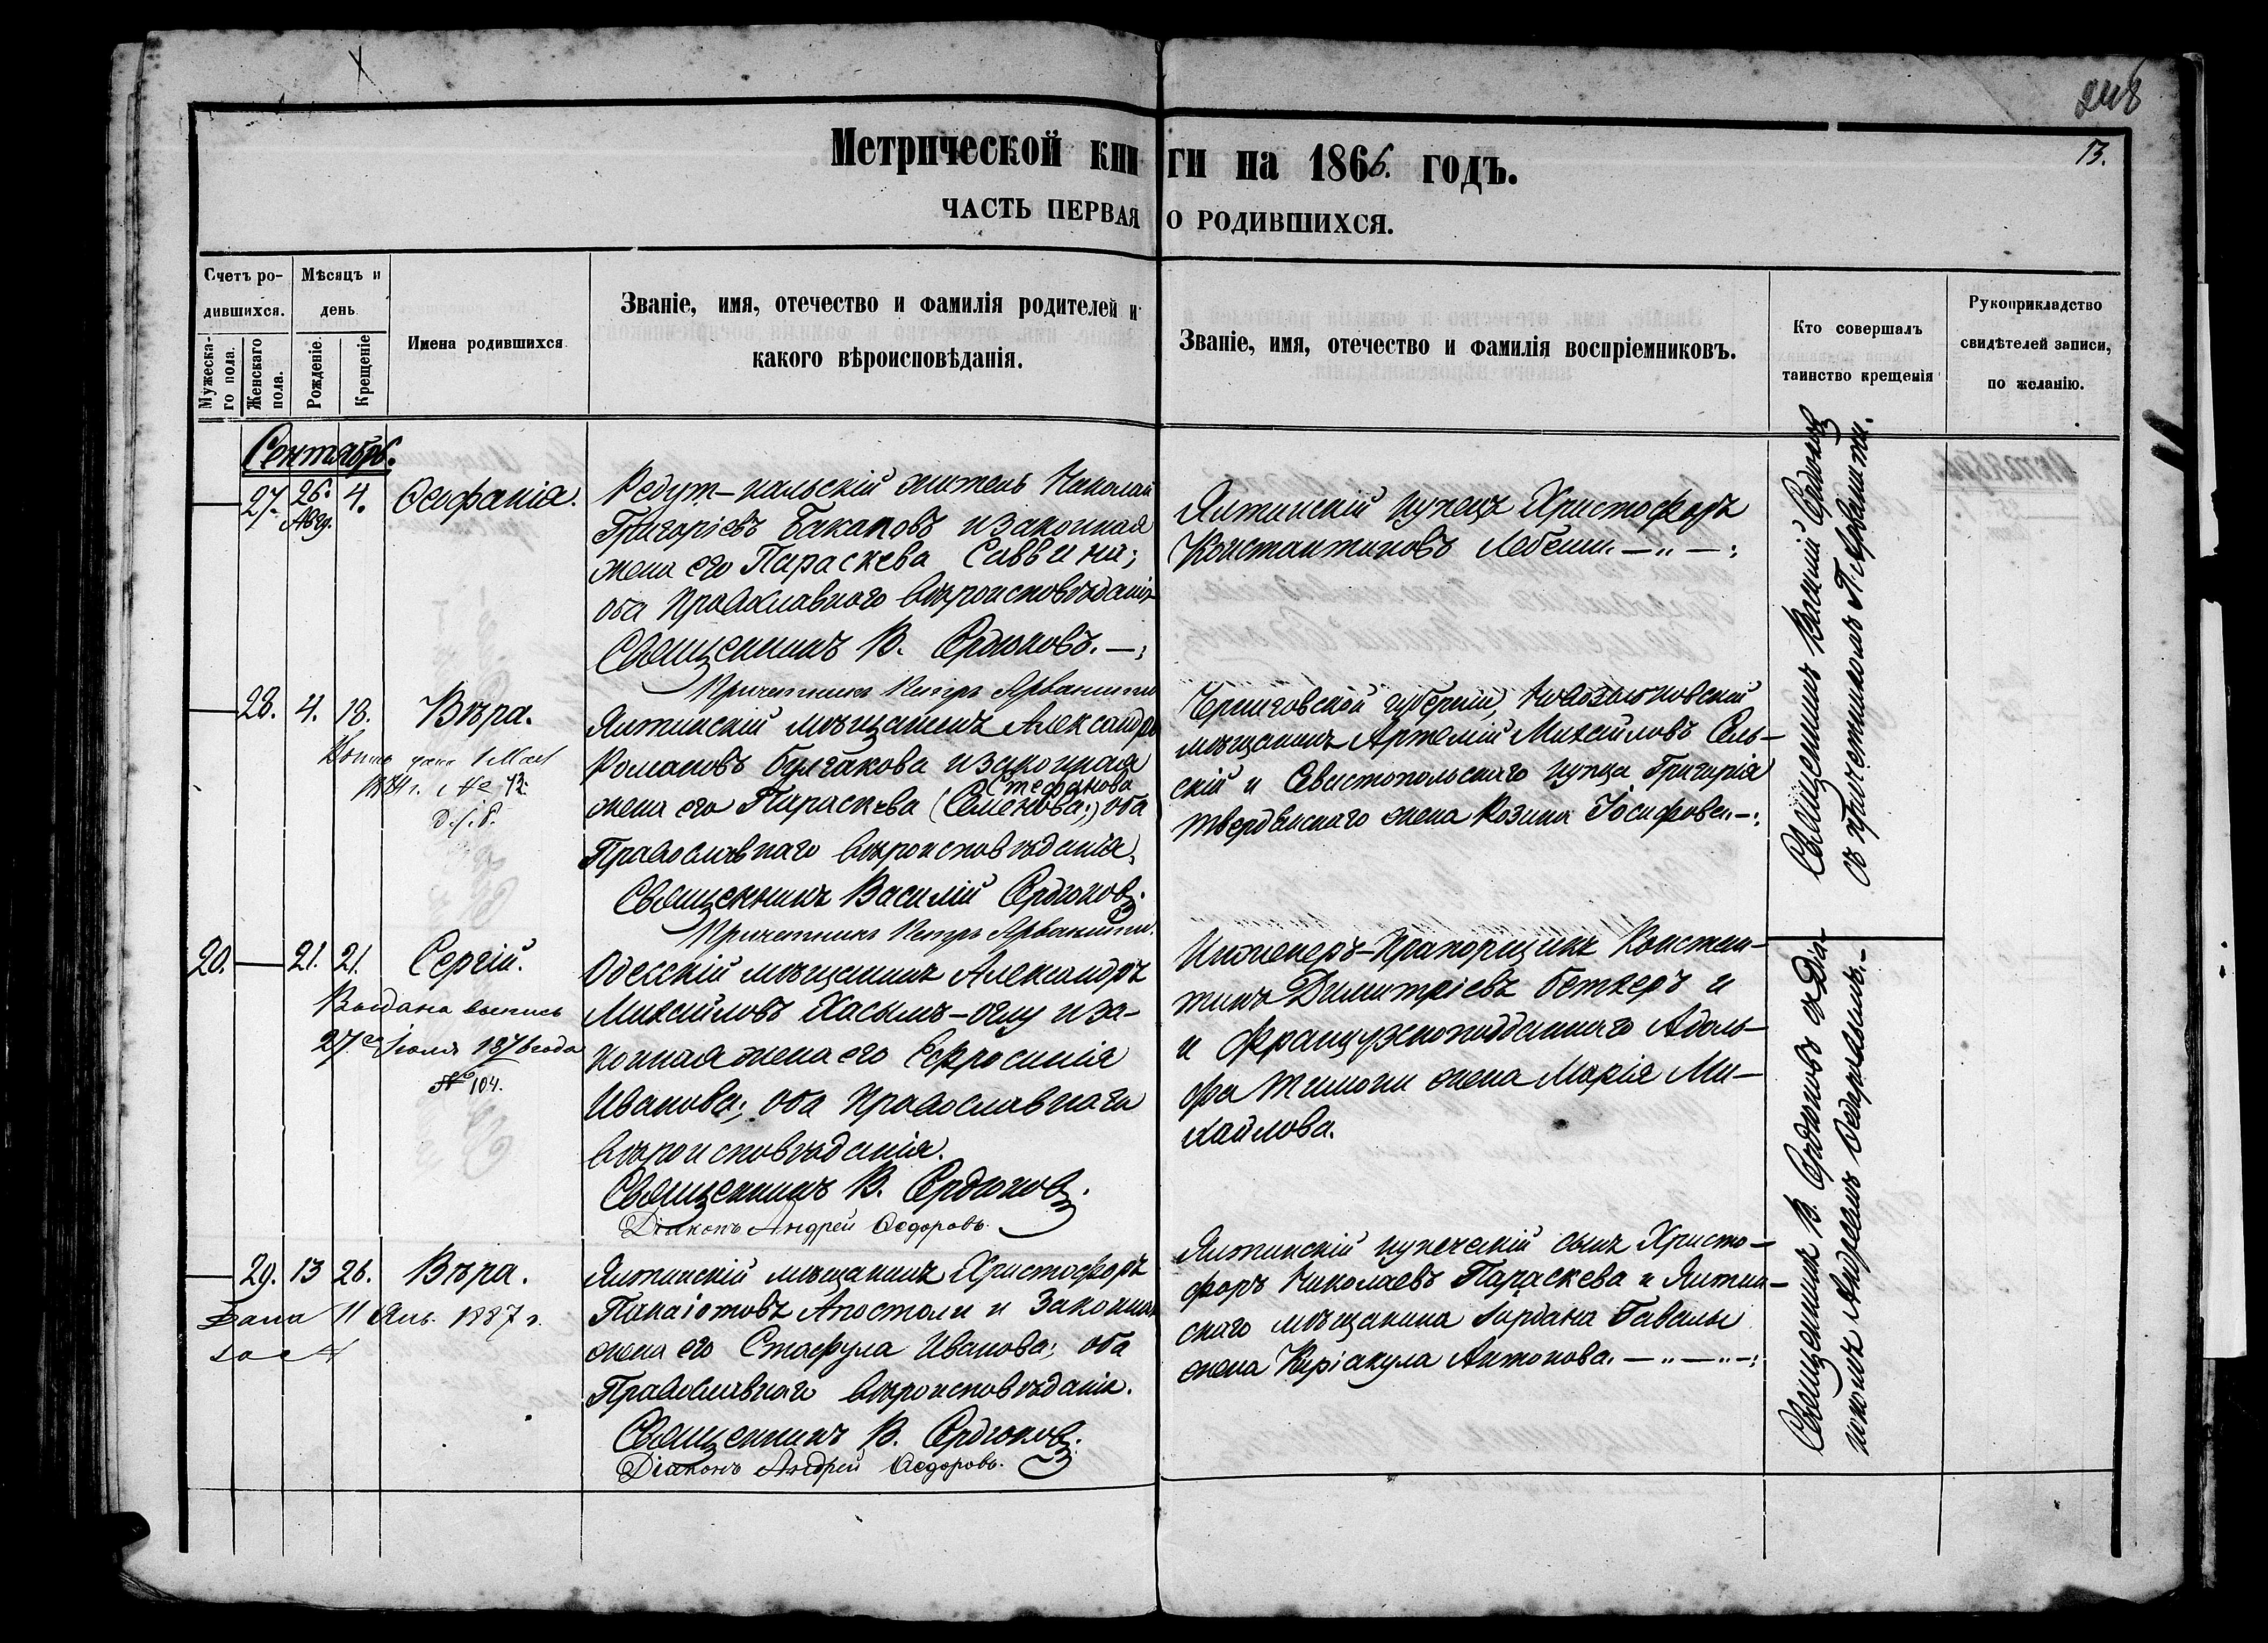 248
13.
Метрической книги на 1866. годъ.
ЧАСТЬ ПЕРВАЯ О РОДИВШИХСЯ.
Счетъ родившихся.
Мужескаго пола.
Женскаго пола.
Мѣсяцъ и день
Рожденіе.
Крещеніе
Имена родившихся
Званіе, имя, отечество и фамилія родителей и
какого вѣроисповѣданія.
Званіе, имя, отечество и фамилія воспріемниковъ.
Кто совершалъ
таинство крещенія
Рукоприкладство
свидѣтелей записи,
по желанію.
Сентябрь.
27. 26. Авг. 4. Ѳеофанія.
Редут-кальскій житель Николай
Григоріевъ Бакаловъ и законная
жена его Параскева Саввина;
оба Православного вѣроисповѣданія
Священникъ В. Сердюковъ.
Причетникъ Петръ Арванити
Ялтинскій купецъ Христофоръ
Константиновъ
28. 4. 18. Вѣра.
1 Мая
1884 г. № 72.
Ялтинскій мѣщанинъ Александръ
Романовъ Булгакова и законная
Стефанова
жена его Параскева (Семенова;) оба
Православнаго вѣроисповѣданія.
Священникъ Василій Сердюковъ.
Причетникъ Петръ Арванити.
Черниговской губерніи, Новозыбковскій
мѣщанинъ Артемій Михайловъ Сель-
скій и Севастопольскаго купца Григорія
жена Розина Іосифова.
Священникъ Василій Сердюковъ
съ причетникомъ П. Арванити.
20. 21. 21. Сергій.
Выдана выпись
27го Іюля 1876 года
№ 104.
Одесскій мѣщанинъ Александръ
Михайловъ Хасымъ-оглу и за-
конная жена его Ефросинія
Иванова; оба Православнаго
вѣроисповѣданія.
Священникъ В. Сердюковъ.
Діаконъ Андрей Ѳедоровъ.
Инженеръ-Прапорщикъ Констан-
тинъ Димитріевъ Беткеръ и
и Французкоподданнаго Адоль-
фа жена Марія Ми-
хайлова.
29. 13 26. Вѣра.
Дана 11 Янв. 1887 г.
Ялтинскій мѣщанинъ Христофоръ
Панаіотовъ Апостоли и Законная
жена его Стафула Иванова; оба
Православнаго вѣроисповѣданія.
Священникъ В. Сердюковъ.
Діаконъ Андрей Ѳедоровъ.
Ялтинскій купеческій сынъ Христо-
форъ Николаевъ Параскева и Ялтин-
скаго мѣщанина Іордана Гавалы
жена Киріакула Антонова.
Священникъ В. Сердюковъ съ Діа-
кономъ Андреемъ Ѳедоровымъ.